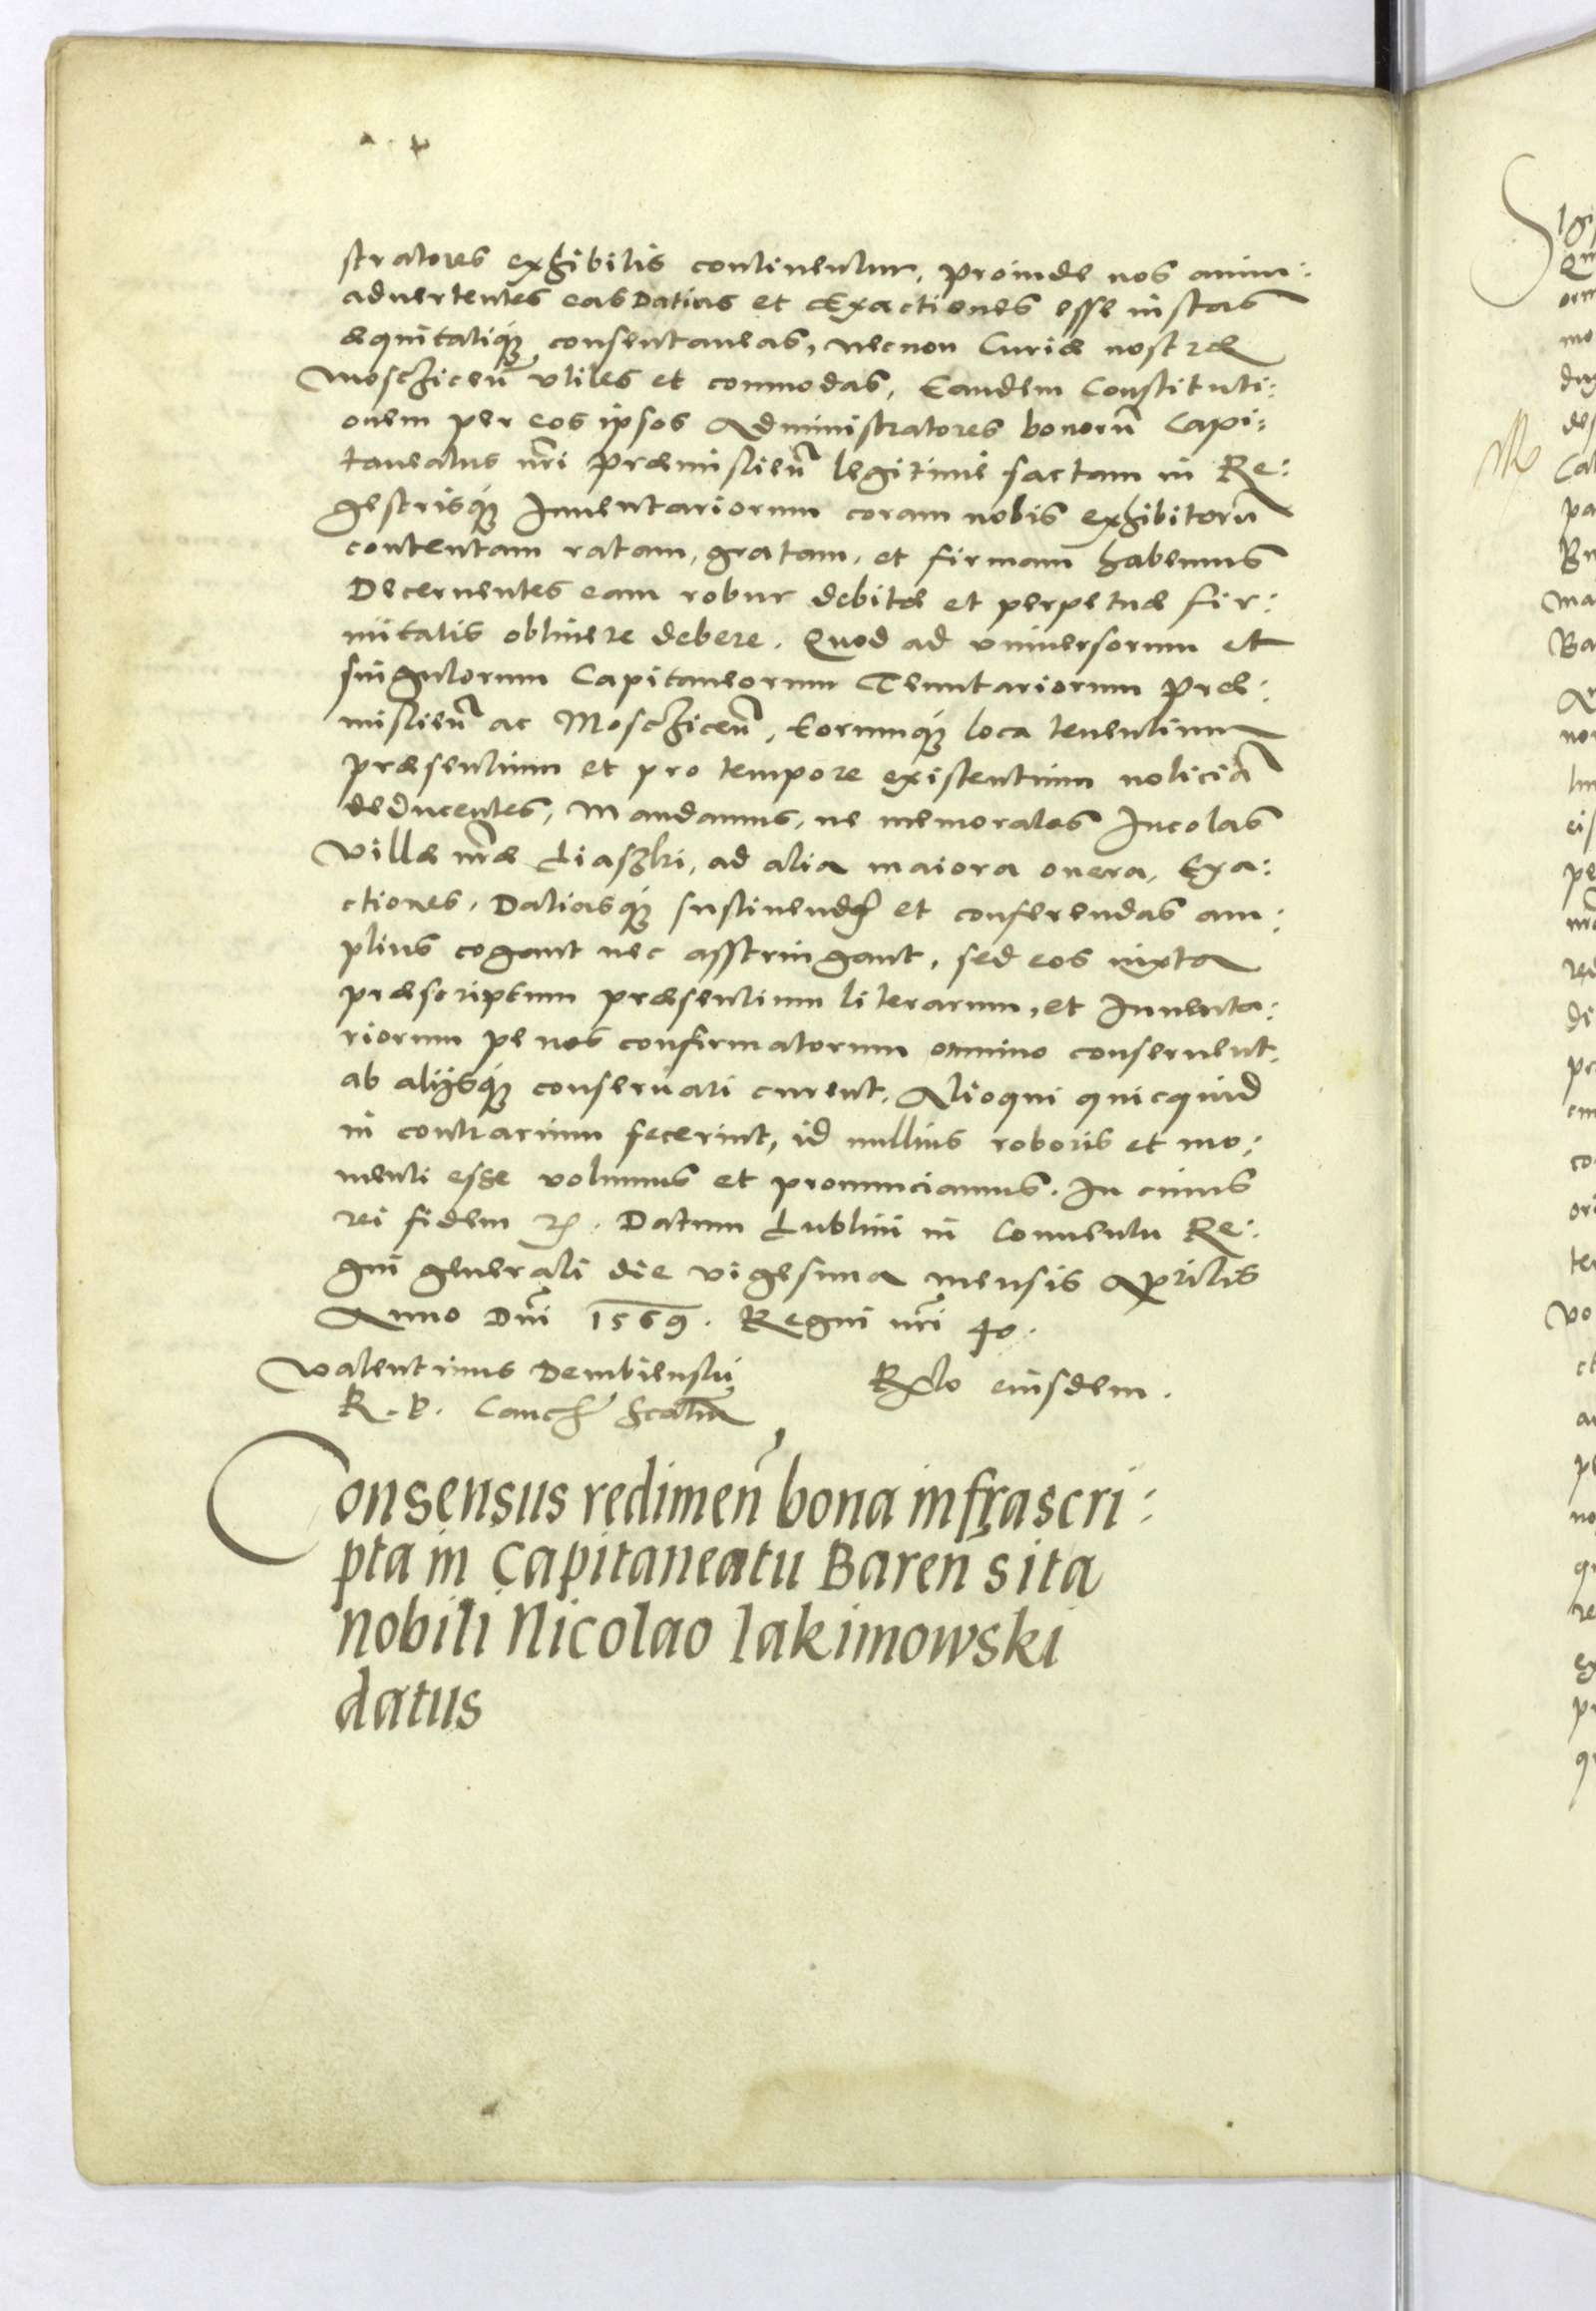 stratores exhibitis continentur, proinde nos anim:
aduertentes eas Datias et Exactiones esse iustas
æquitatiq́; consentaneas, necnon Curiæ nostræ
Mosczicen̄ vtiles et commodas, Eandem Constituti:
onem per eos ipsos Administratores bonorū Capi:
taneatus nr̄i Præmislien̄ legitime factam in Re:
gestrisq́; Inuentariorum coram nobis exhibitorū
contentam ratam, gratam, et firmam habemus
Decernentes eam robur debitæ et perpetuæ fir:
mitatis obtinere debere. Quod ad vniuersorum et
singulorum Capitaneorum Tenutariorum Præ:
mislien̄ ac Mosczicen̄, Eorumq́; loca tenentium
præsentium et pro tempore existentium noticiā
deducentes, Mandamus, ne memoratos Incolas
Villæ nr̄æ Liaszki, ad alia maiora onera, Exa:
ctiones, Datiasq́; sustinend et conferendas am:
plius cogant nec asstringant, sed eos iuxta
præscriptum præsentium literarum, et Inuenta:
riorum pe nos confirmatorum omnino conseruent,
ab alijsq́; conseruari curent, Alioqui quicquid
in contrarium fecerint, id nullius roboris et mo:
menti esse volumus et pronunciamus. In cuius
rei fidem etc. Datum Lublini in Conuentu Re:
gni generali die vigesima mensis Aprilis
Anno Dn̄i 1569. Regni nr̄i 40.
Valentinus Dembienski
R. P. Canc
Rl̄o eiusdem.
Consensus redimen̄ bona infrascri:
pta in Capitaneatu Baren̄ sita
nobili Nicolao Iakimowski
datus